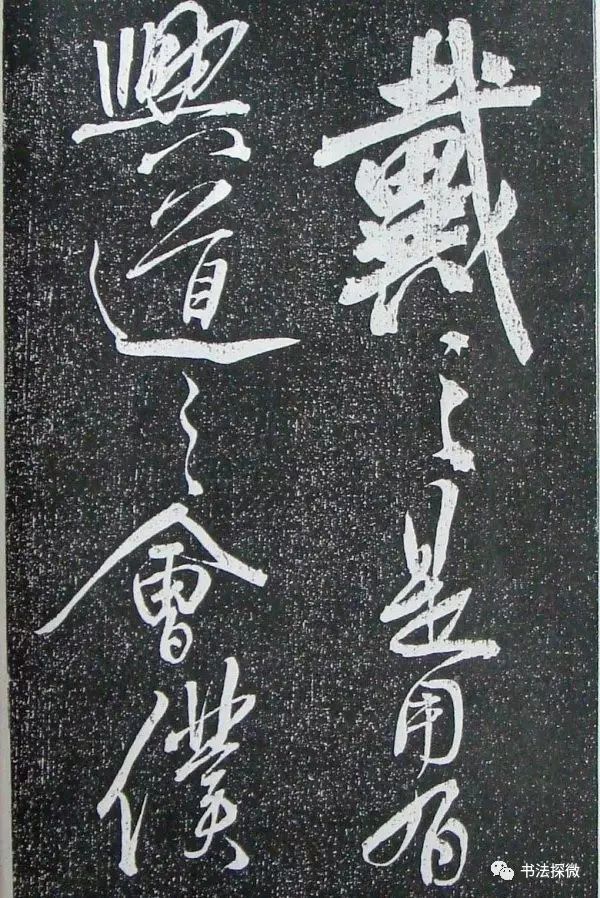 戴之是用有
興道之會僕
书法探微